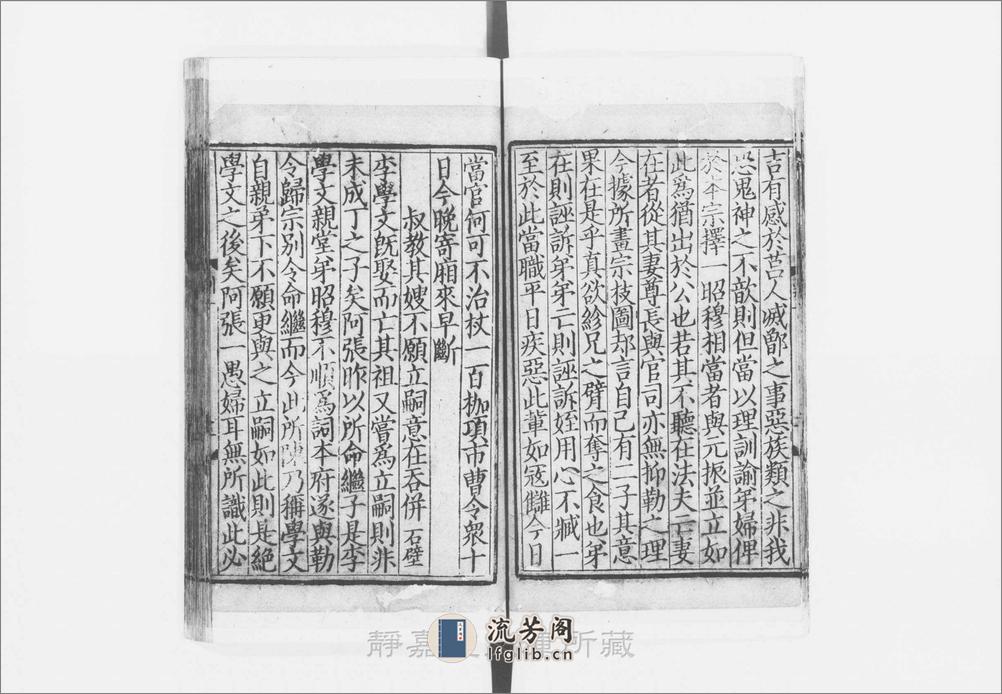 吉有感於莒人滅鄫之事惡族類之非我
恐鬼神之不歆則但當以理訓諭弟婦俾
於本宗擇一昭穆相當者與元振並立如
此為猶出於公也若其不聽在法夫亡妻
在者從其妻尊長與官司亦無抑勒之理
今據所畫宗枝圖却言自己有二子其意
果在是乎真欲紾兄之臂而奪之食也弟
在則誣訴弟弟亡則誣訴姪用心不臧一
至於此當職平日疾惡此軰如寇讎今日
當官何可不治杖一百枷項市曹令衆十
日今晚寄廂來早斷
叔教其嫂不願立嗣意在吞併 石壁
李學文旣娶而亡其祖又嘗爲立嗣則非
未成丁之子矣阿張昨以所命繼子是李
學文親堂弟昭穆不順爲詞本府遂與勒
令歸宗别令命繼而今此所陳乃稱學文
自親弟下不願更與之立嗣如此則是絕
學文之後矣阿張一愚婦耳無所識此必
靜嘉 所藏
流芳阁
lfglib.cn